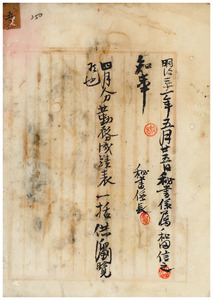 明治三十二年五月廿五日秘書係属和田信之
知事
秘書係長
四月分勤務成績表一括供瀏覧
候也
250